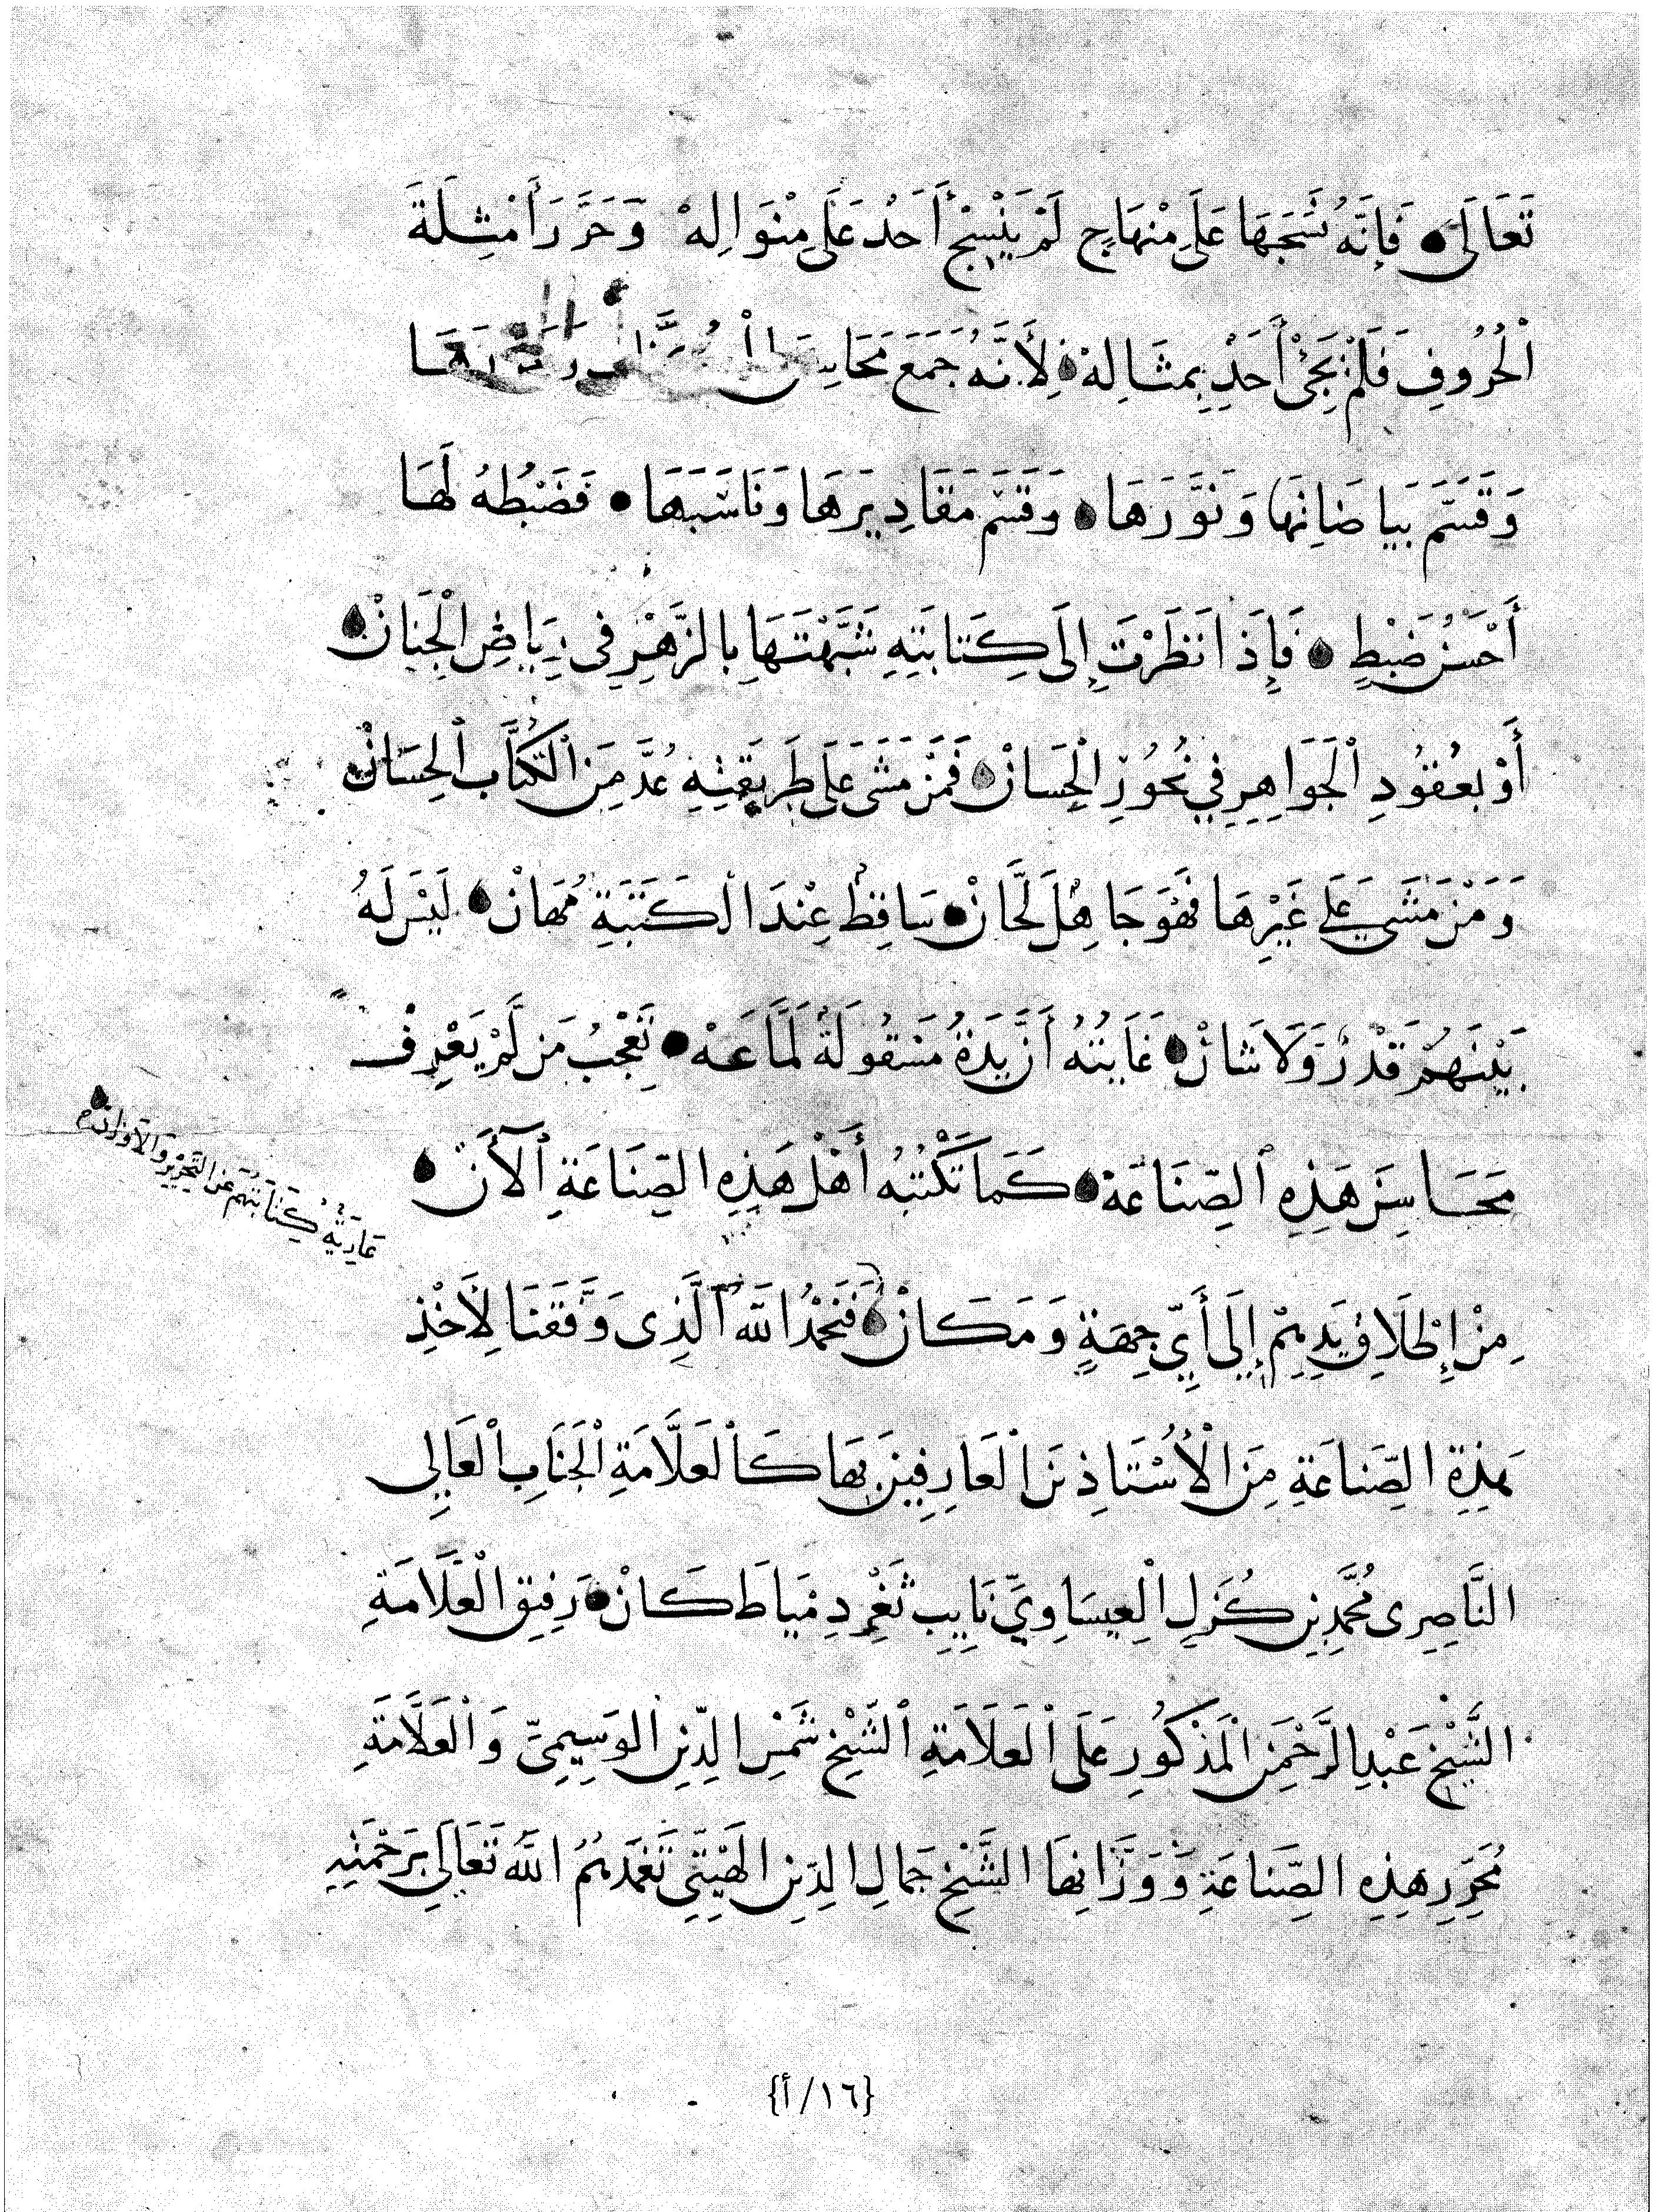 تَعَالَى • فَإِنَّهُ نَسَجَهَا عَلَى مِنْهَاجٍ لَمْ يَنْسِجْ أَحَدٌ عَلَى مِنْوَالِهْ وَحَرَّرَ أَمْثِلَةَ
الْحُرُوفِ فَلَمْ يَجِئْ أَحَدٌ بِمِثَالِهْ • لِأَنَّهُ جَمَعَ مَحَاسِنَ
وَقَسَّمَ بَيَاضَاتِهَا وَنَوَّرَهَا • وَقَسَّمَ مَقَادِيرَهَا وَنَاسَبَهَا • فَضَبْطُهُ لَهَا
أَحْسَنُ ضَبْطٍ • فَإِذَا نَظَرْتَ إِلَى كِتَابَتِهِ شَبَّهْتَهَا بِالزَّهْرِ فِى رِيَاضِ الْجِنَانْ •
أَوْ بِعُقُودِ الْجَوَاهِرِ فِي نُحُورِ الْحِسَانْ • فَمَنْ مَشَى عَلَى طَرِيقَتِهِ عُدَّ مِنَ الْكُتَّابِ الْحِسَانْ
وَمَنْ مَشَى عَلَى غَيْرِهَا فَهُوَ جَاهِلٌ لَحَّانْ • سَاقِطٌ عِنْدَ الْكَتَبَةِ مُهَانْ • لَيْسَ لَهُ
بَيْنَهُمْ قَدْرٌ وَلَا شَانْ • غَايَتُهُ أَنَّ يَدَهُ مَنْقُولَةٌ لَمَّاعَهْ • تُعْجِبُ مَن لَّمْ يَعْرِفْ
مَحَاسِنَ هَذِهِ الصِّنَاعَهْ • كَمَا تَكْتُبُهُ أَهْلُ هَذِهِ الصِّنَاعَةِ الْآنَ •
عَارِيَةٌ كِتَابَتُهُمْ عَنِ التَّحْرِيرِ وَالْأَوْزَانْ •
مِنْ إِطْلَاقِ يَدِهِمْ إِلَى أَيِّ جِهَةٍ وَمَكَانْ • فَنَحْمَدُ اللَّهَ الَّذِى وَفَّقَنَا لِأَخْذِ
هَذِهِ الصِّنَاعَةِ مِنَ الْأُسْتَاذِينَ الْعَارِفِينَ بِهَا كَالْعَلَّامَةِ الْجَنَابِ الْعَالِى
النَّاصِرِى مُحَمَّدِ بْنِ كُزَلِ الْعِيسَاوِيِّ نَايِبِ ثَغْرِ دِمْيَاطَ كَانْ • رَفِيقِ الْعَلَّامَةِ
الشَّيْخِ عَبْدِ الرَّحْمَنِ الْمَذْكُورِ عَلَى الْعَلَّامَةِ الشَّيْخِ شَمْسِ الدِّينِ الْوَسِيمِىِّ وَالْعَلَّامَةِ
مُحَرِّرِ هَذِهِ الصِّنَاعَةِ وَوَزَّانِهَا الشَّيْخِ جَمَالِ الدِّينِ الْهَيْتِيِّ تَغَمَّدَهُمُ اللَّهُ تَعَالَى بِرَحْمَتِهِ
{١٦/أ}